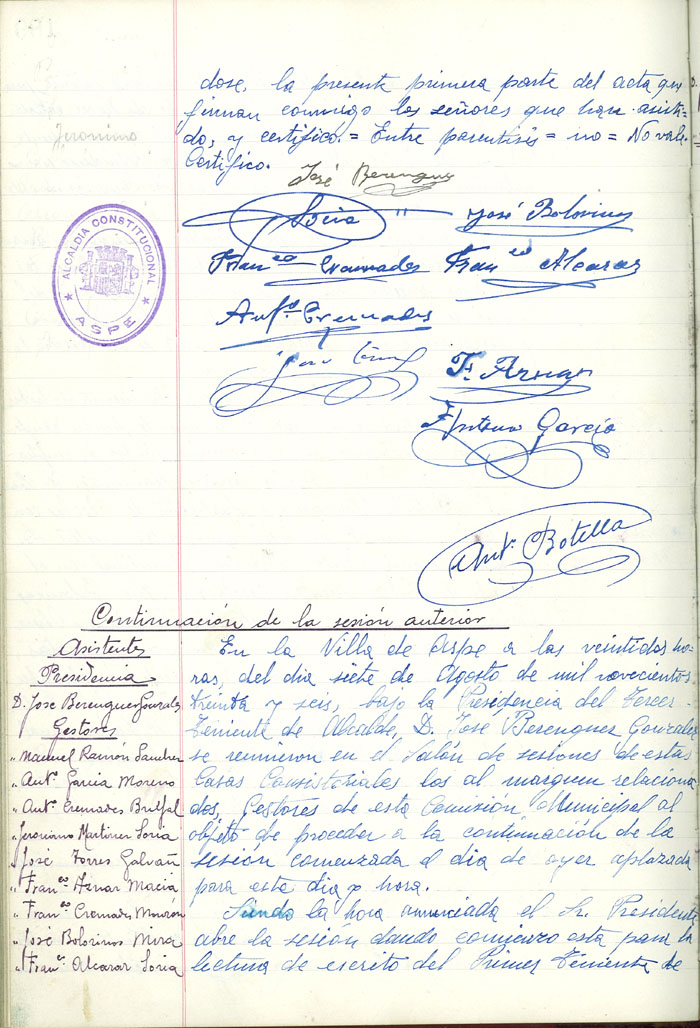 dose, la presente primera parte del acta que
firman conmigo los señores que han asisti-
do, y certifico.= Entre parentisis = no = No vale.
Certifico.
Jeronimo
José Berenguer
Soria
José Bolorinos
Franco Cremades
Franco Alcaraz
Anto Cremades
F. Aznar
Antonio Garcia
Ant. Botella
ALCALDIA CONSTITUCIONAL
ASPE
Continuación de la sesión anterior
Asistentes
Presidencia
D. Jose Berenguer Gonzalez
Gestores
" Manuel Ramón Sanchez
" Anto Garcia Moreno
" Anto Cremades Bulfal
" Jeronimo Martinez Soria
" José Torres Galvañ
" Franco Aznar Maciá
" Franco Cremades
" José Bolorinos Mira
" Franco Alcaraz Soria
En la Villa de Aspe a las veintidos ho-
ras, del dia siete de Agosto de mil novecientos
treinta y seis, bajo la Presidencia del Tercer
Teniente de Alcalde, D. José Berenguer Gonzalez
se reunieron en el Salón de sesiones de estas
Casas Consistoriales los al margen relaciona
dos, Gestores de esta Comisión Municipal al
objeto de proceder a la continuación de la
sesión comenzada el dia de ayer aplazada
para este dia y hora.
Siendo la hora anunciada el Sr. Presidente
abre la sesión dando comienzo esta para la
lectura de escrito del Primer Teniente de